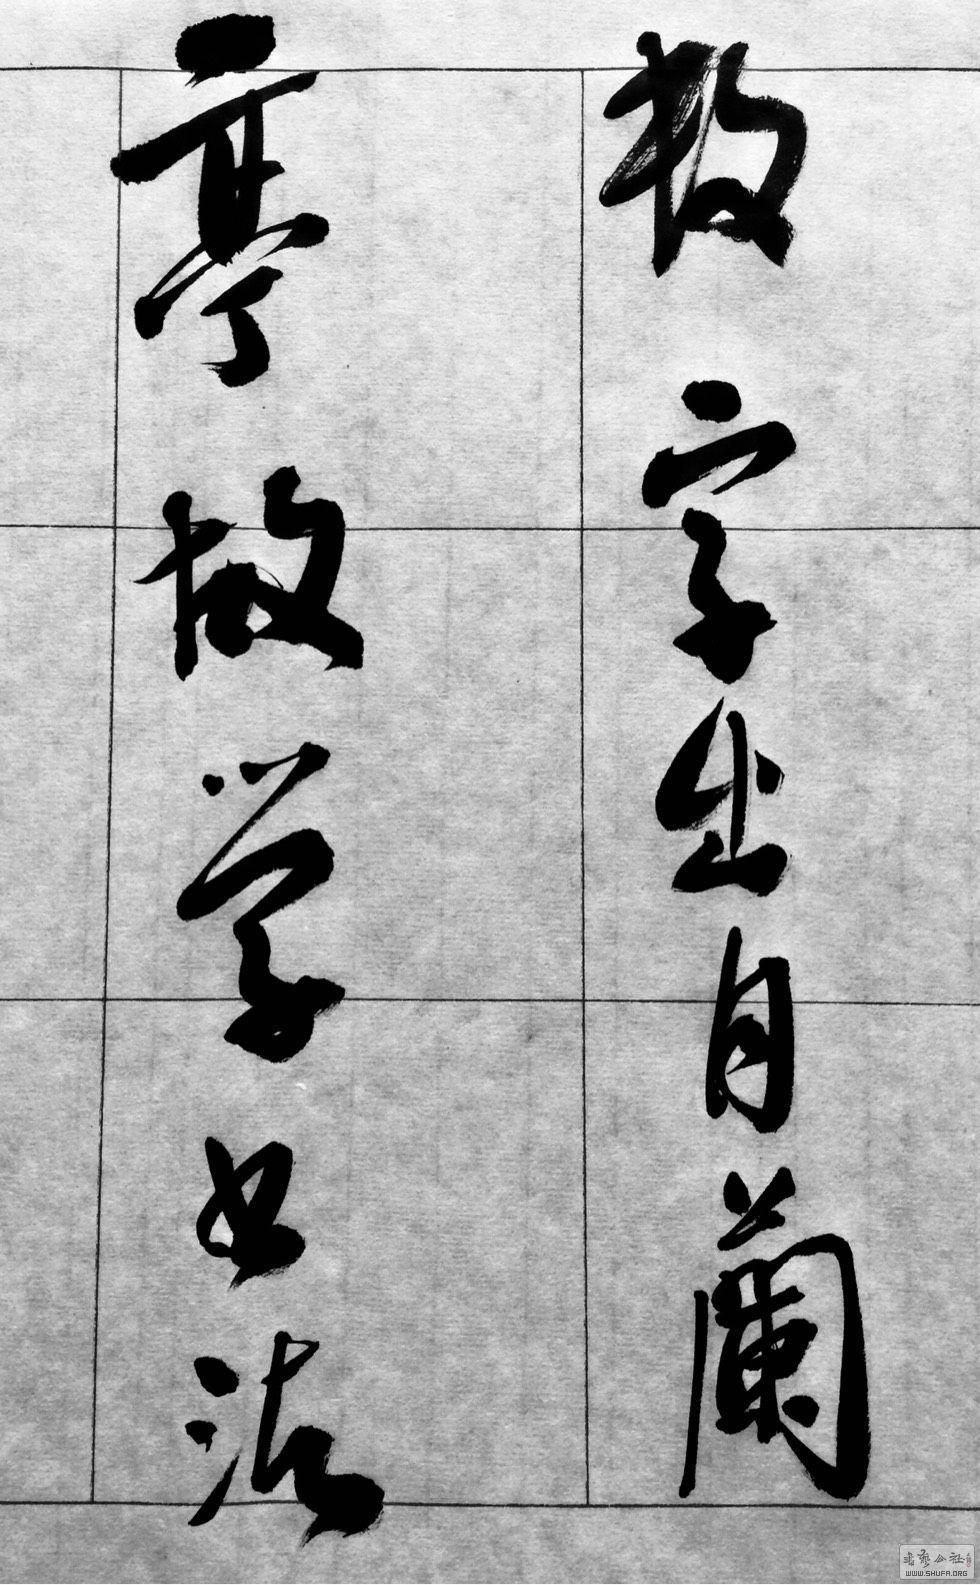 数字出自蘭
亭故学书法
書藝公社
WWW.SHUFA.ORG